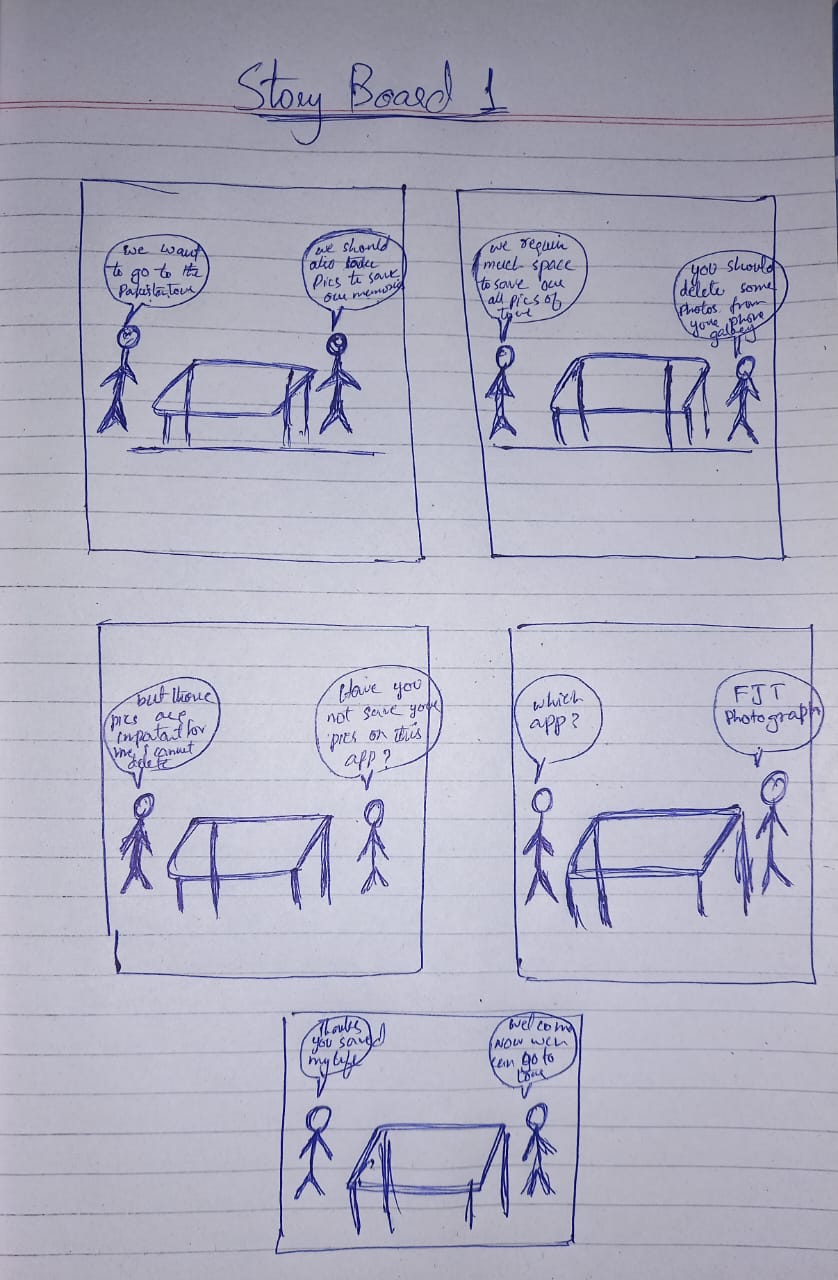 Story Board 1
we want
to go to the
we should
also take
Pics to save
our memories
we require
much space
to save our
all pics of
tour
you should
delete some
Photos from
your phone
gallery
but those
pics are
important for
me, I cannot
delete
Have you
not save your
pics on this
app?
which
app?
FJT
Photograph
Thanks
you saved
my life
Welcome
NOW we
can go to
tour